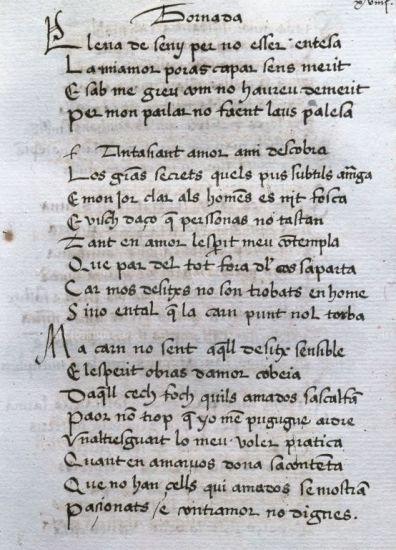 Tornada
Plena de seny per no esser entesa
La miamor poras capar sens merit
E sab me greu com no haureu demerit
Per mon parlar no faent laus palesa
f Antasiant amor ami descobra
Los grãs secrets quels pus subtils amaga
E mon jor clar als homẽs es nit fosca
E visch daço q̃ personas no tastan
Tant en amor lesperit meu cõtempla
Que par del tot fora dl cos saparta
Car mos desitxs no son trobats en home
Sino ental q̃ la carn punt nol torba
Ma carn no sent aq̃ll desitx sensible
E lesperit obras damor cobeia
Daq̃ll cech foch quils amados sascalfã
Paor nõ trop q̃ yo mẽ pugugue ardre
Vnaltresguart lo meu voler pratica
Quant en amaruos dona sacontẽta
Que no han cells qui amados se mostrã
Pasionats / e contramor no dignes.